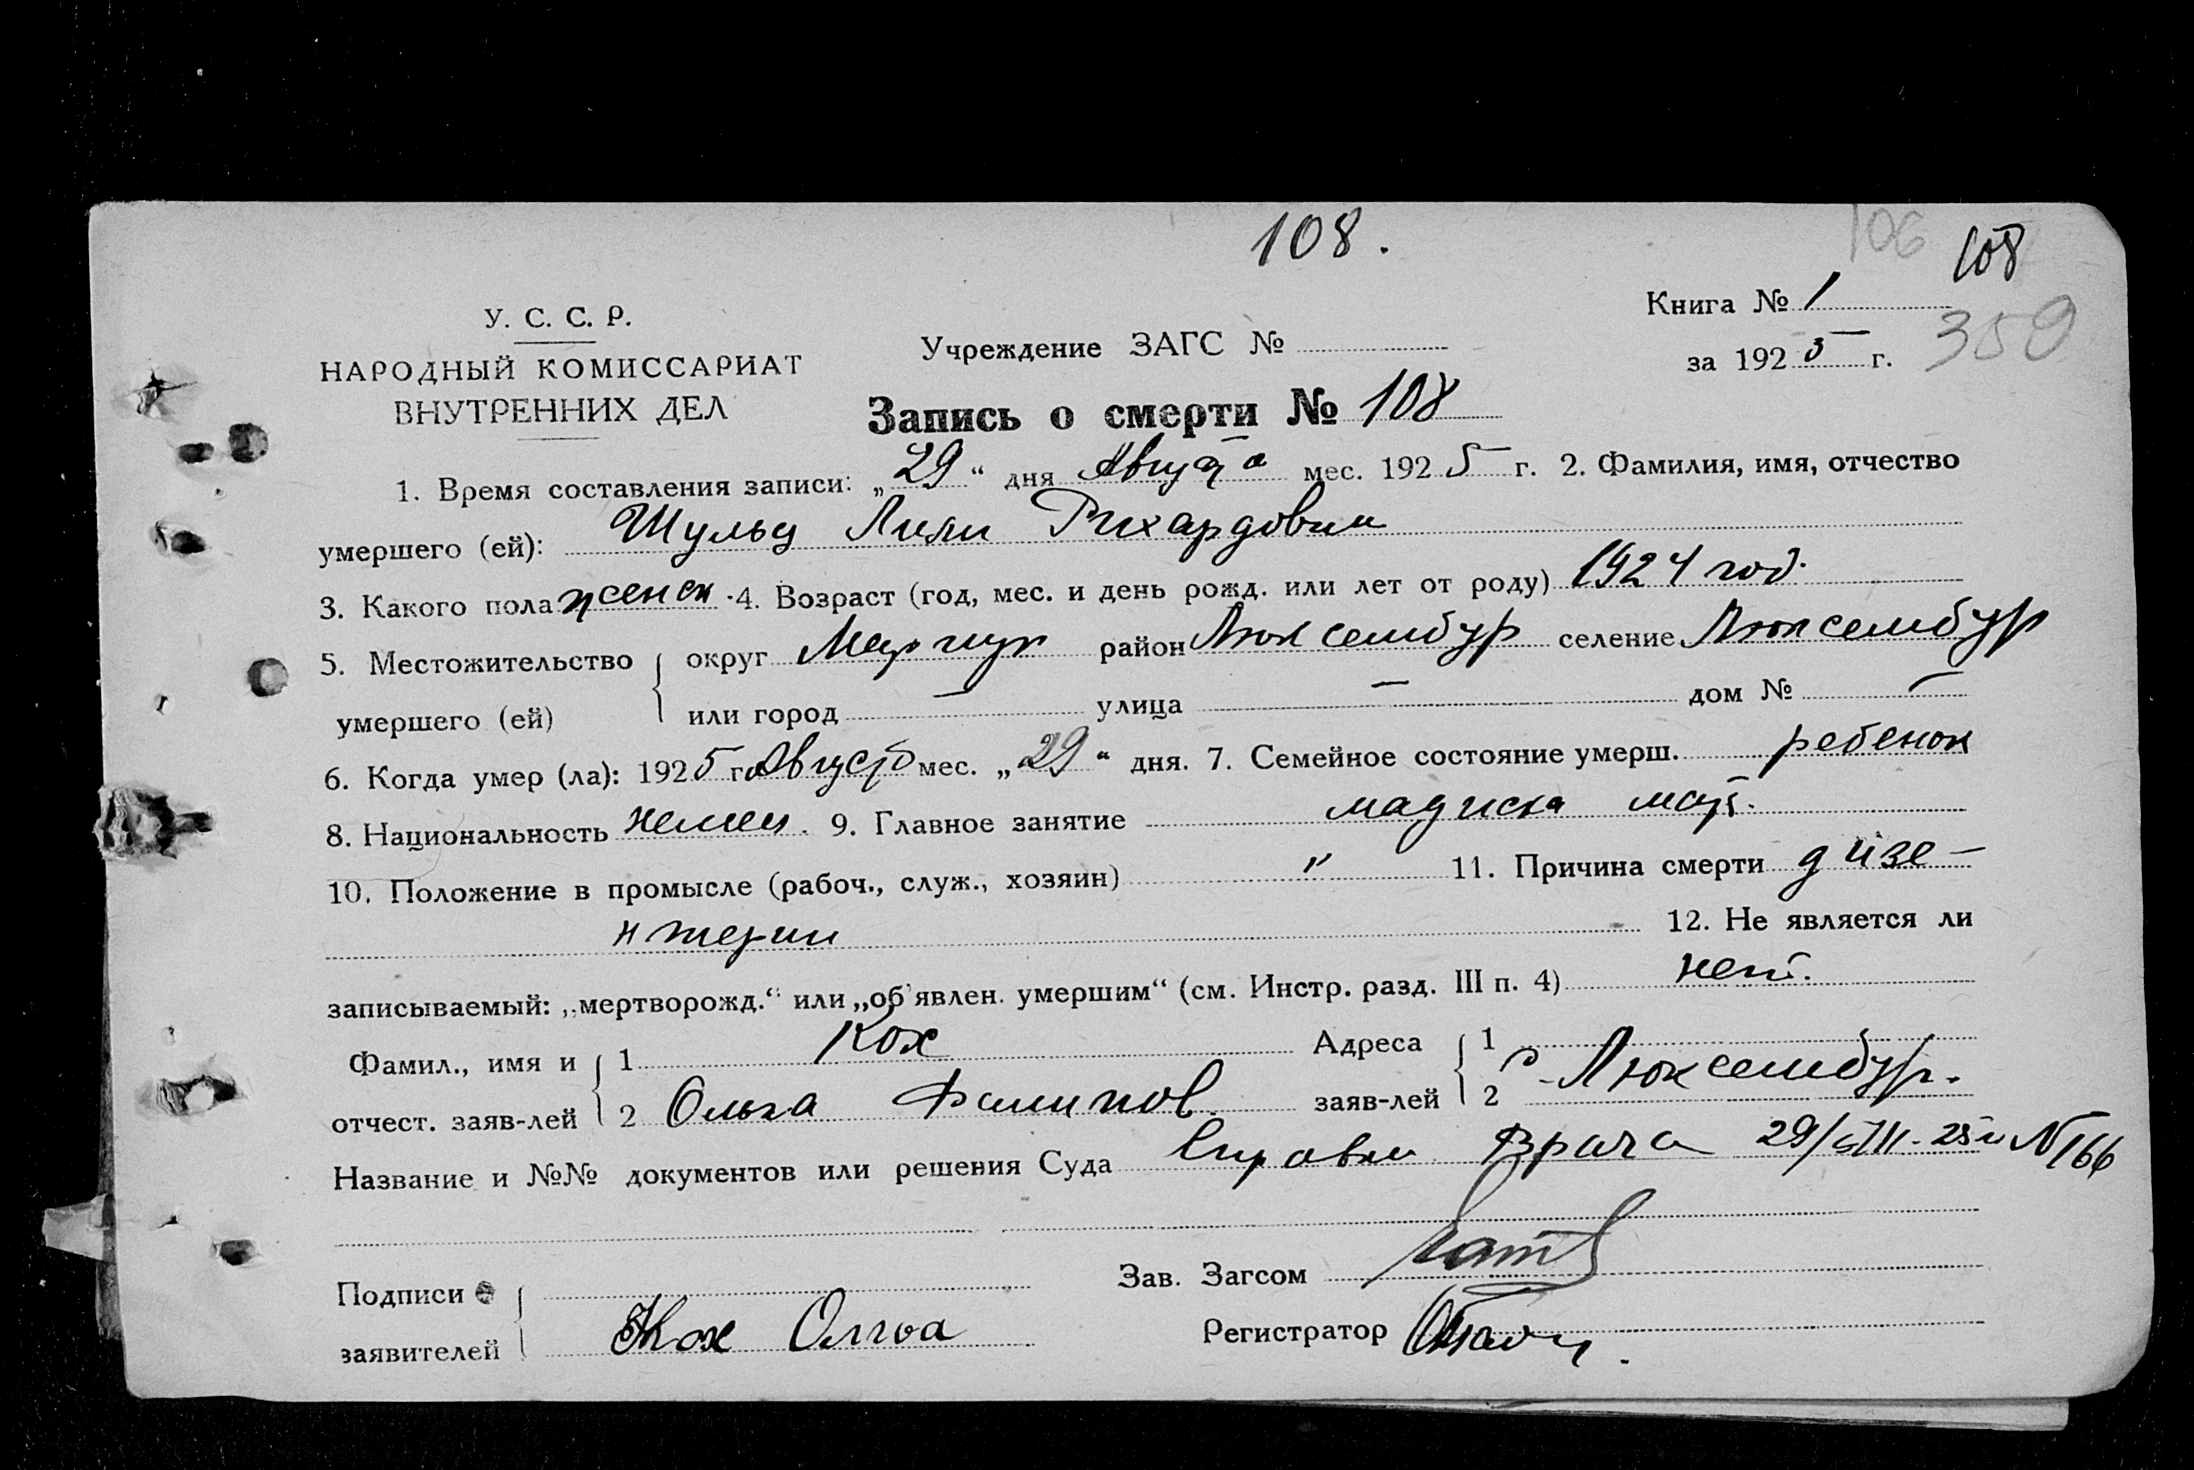 108.
106 108
Книга № 1
359
У. С. С. Р.
НАРОДНЫЙ КОМИССАРИАТ
ВНУТРЕННИХ ДЕЛ
Учреждение ЗАГС №
за 192 5 г.
Запись о смерти № 108
1. Время составления записи: „ 29 “ дня Августа мес. 192 5 г. 2. Фамилия, имя, отчество
умершего (ей): Шульц Лили Рихардовн
3. Какого пола женск. 4. Возраст (год, мес. и день рожд. или лет от роду) 1924 год.
5. Местожительство округ Мариуп район Люксембур селение Люксембур
умершего (ей) или город — улица — дом № —
6. Когда умер (ла): 192 5 г. Августа мес. „ 29 “ дня. 7. Семейное состояние умерш. ребенок
8. Национальность немец. 9. Главное занятие мат.
10. Положение в промысле (рабоч., служ., хозяин) " 11. Причина смерти дизе-
нтерии 12. Не является ли
записываемый: „мертворожд.“ или „об'явлен. умершим“ (см. Инстр. разд. III п. 4) нет.
Фамил., имя и 1 Кох Адреса 1
отчест. заяв-лей 2 Ольга Филипов. заяв-лей 2 с-Люксембур.
Название и №№ документов или решения Суда Справки Врача 29/VIII-25 г N 166
Подписи
Зав. Загсом
заявителей Кох Олгоа
Регистратор